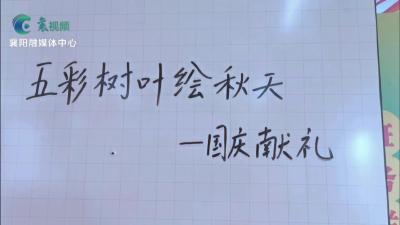 襄视频
襄阳融媒体中心
五彩树叶绘秋天
—国庆献礼